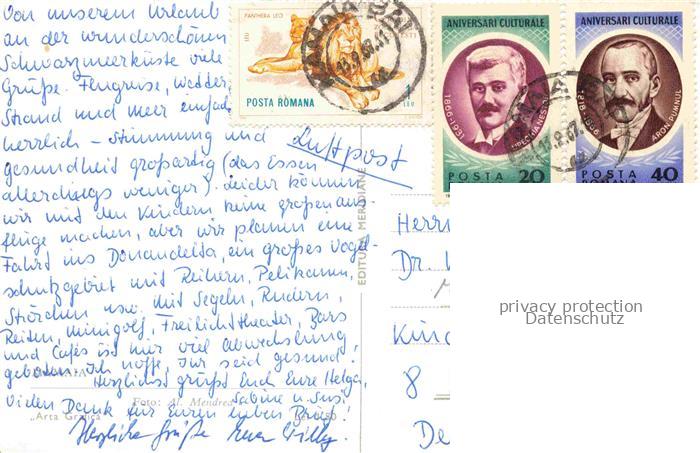 Von unserem Urlaub
an der wunderschönen
Schwarzmeerküste viele
Grüße. Flugreise, Wetter,
Strand und Meer einfach
herrlich – Stimmung und
gesundheit großartig (das Essen
allerdings weniger). Leider können
wir mit den Kindern keine großen aus-
flüge machen, aber wir planen eine
Fahrt ins Donaudelta, ein großes Vogel-
schutzgebiet mit Reihern, Pelikanen,
Störchen usw. Mit Segeln, Rudern,
Reiten, minigolf, Freilichttheater, Bars
und Cafés ist hier viel Abwechslung
geboten. Ich hoffe, Ihr seid gesund!
Herzlichst grüßt Euch Eure Helga,
Sabine u. Susi
Vielen Dank für Euren lieben Brief!
Herzliche Grüße Euer Willy.
Foto: Al. Mendrea
„Arta Grafică"
Luftpost
EDITURA MERIDIANE
PANTHERA LEO
LEU
POSTA ROMANA
1
LEU
ANIVERSARI CULTURALE
1866-1931
POSTA
20
ANIVERSARI CULTURALE
1818-1866
ARON PUMNUL
POSTA
ROMANA
40
Herrn
Dr.
8
privacy protection
Datenschutz